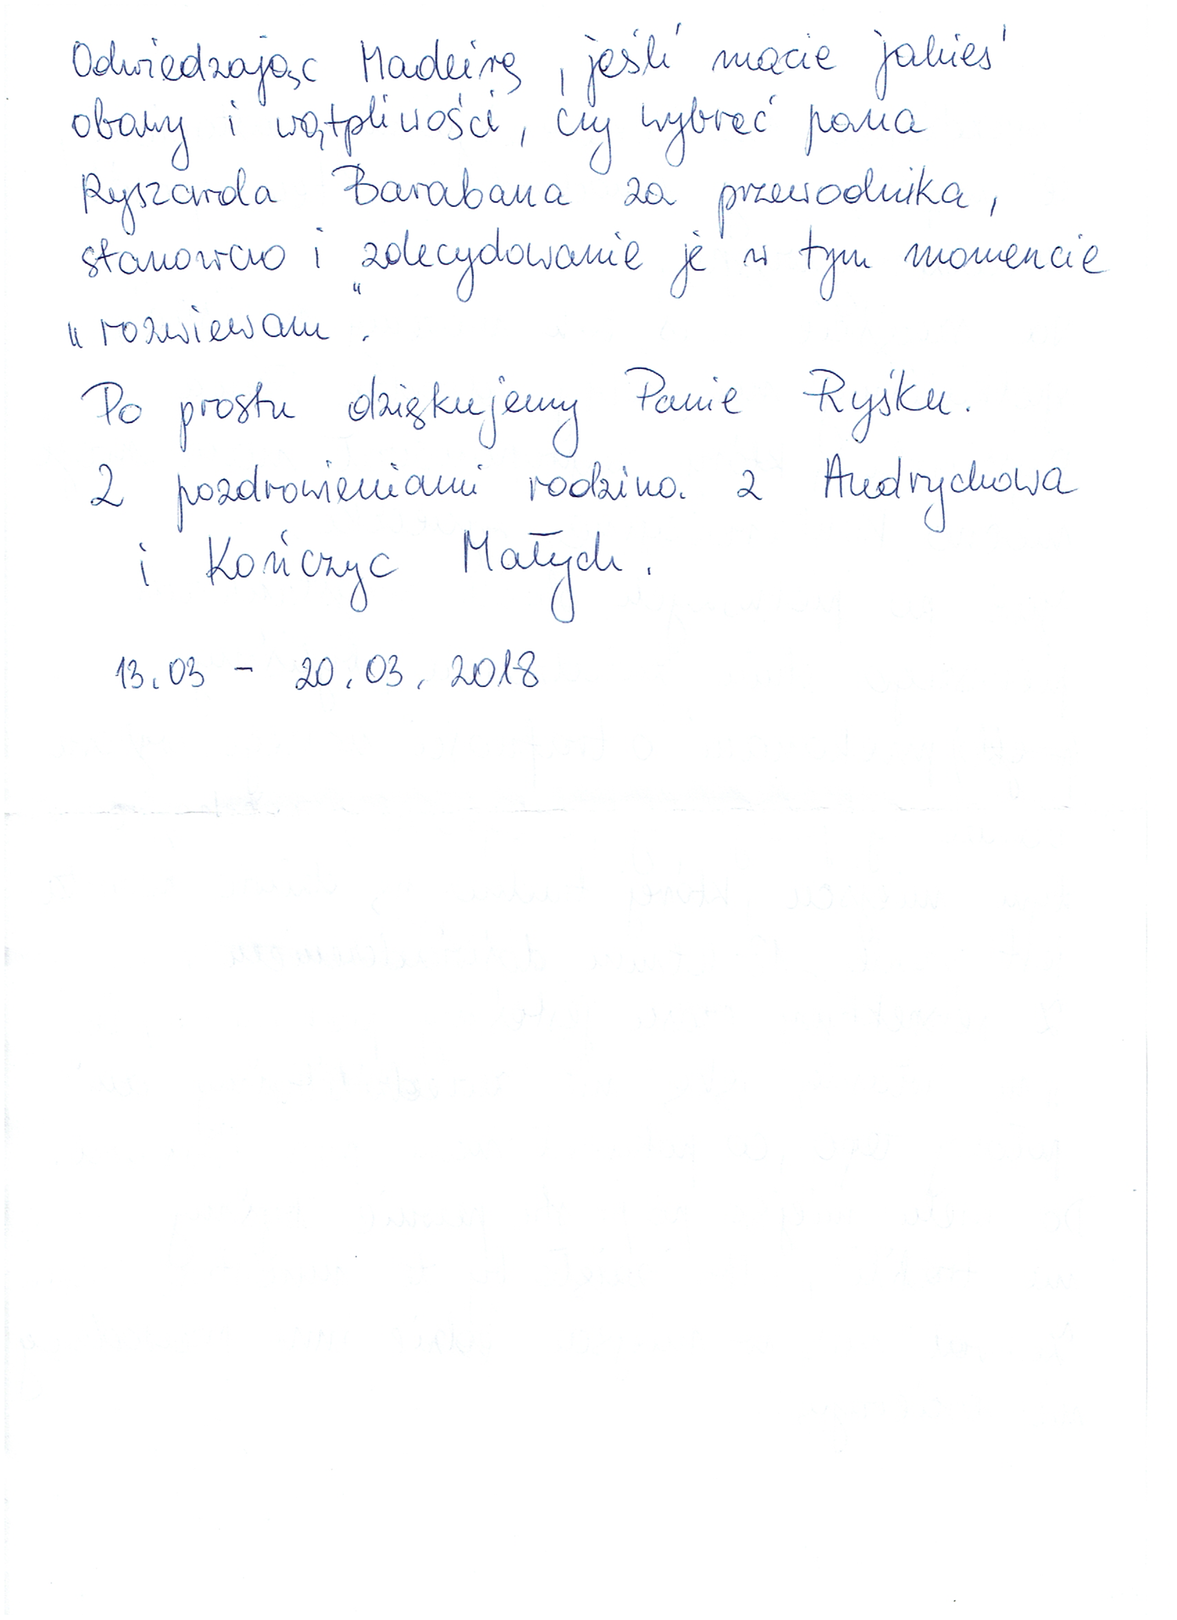 Odwiedzając Maderę, jeśli macie jakieś
obawy i wątpliwości, czy wybrać pana
Ryszarda Barabana za przewodnika,
stanowczo i zdecydowanie je w tym momencie
„rozwiewam".
Po prostu dziękujemy Panie Ryśku.
Z pozdrowieniami rodzina z Andrychowa
i Kończyc Małych.
13.03 - 20.03.2018